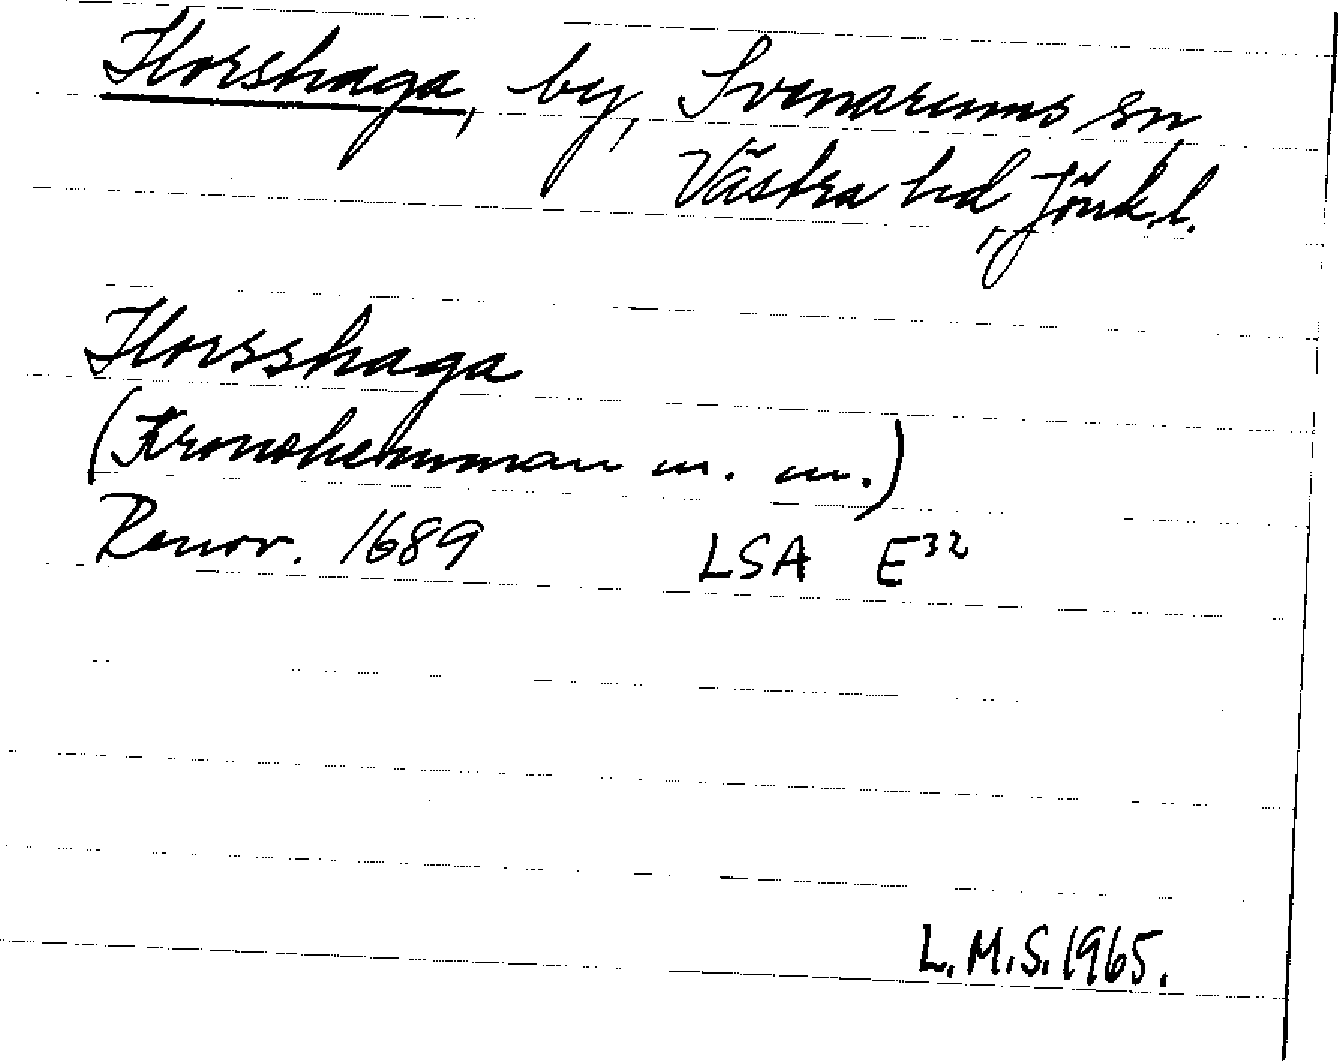 Horshaga, by, Svenarums sn
Västra hd, Jönk.l.
Horsshaga
(Kronohemman m. m.)
Renov. 1689 LSA E32
L.M.S. 1965.